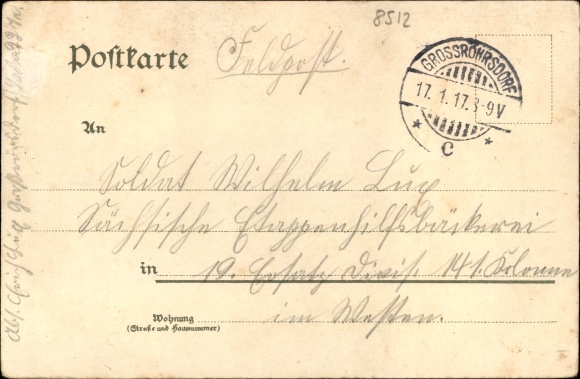 8512
Postkarte
Feldpost.
GROSSRÖHRSDORF
17. 1. 17. 8-9V
* c *
An
Soldat Wilhelm Lux
Sächsische Etappenhilfsbäckerei
in 19. Ersatz Divis. 141. Kolonne
im Westen.
Wohnung
(Straße und Hausnummer)
Abs. Erich